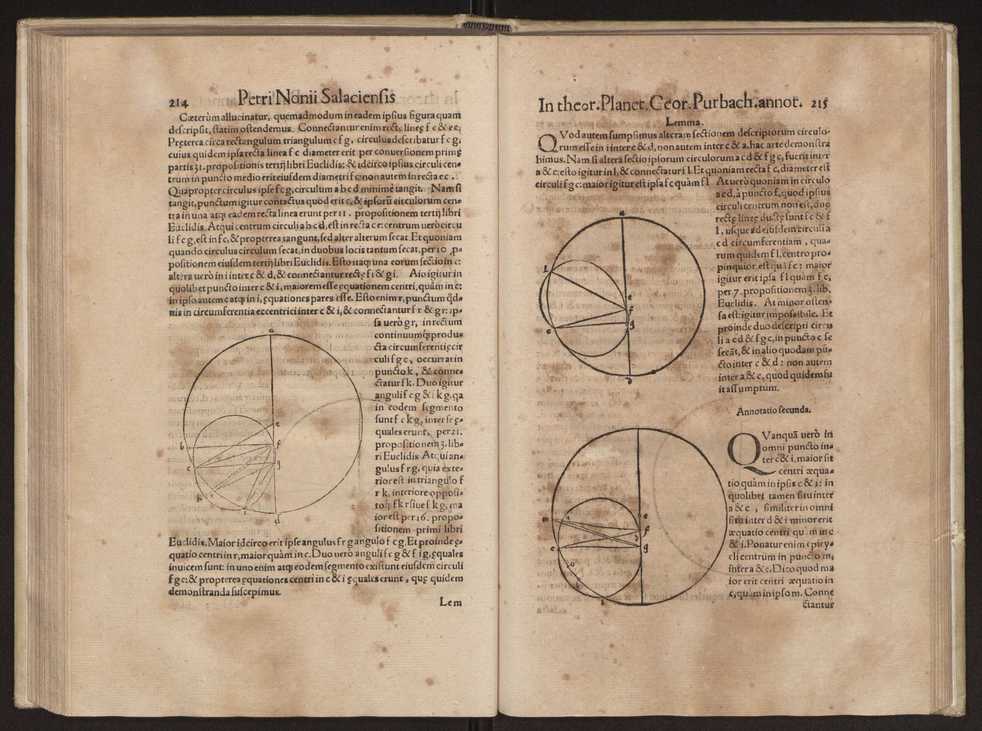 214 Petri Nonii Salaciensis
Cæterùm allucinatur, quemadmodum in eadem ipsius figura quam
descripsit, statim ostendemus. Connectantur enim rectę lineę f c & e c;
Pręterea circa rectangulum triangulum c f g, circulus describatur f c g,
cuius quidem ipsa recta linea f c diameter erit per conuersionem primę
partis 31. propositionis tertij libri Euclidis: & idcirco ipsius circuli cen-
trum in puncto medio erit eiusdem diametri f c non autem in recta e c.
Quapropter circulus ipse f c g, circulum a b c d minimè tangit. Nam si
tangit, punctum igitur contactus quod erit c, & ipsorū circulorum cen-
tra in una atq; eadem recta linea erunt per 11. propositionem tertij libri
Euclidis. Atqui centrum circuli a b c d, est in recta e c: centrum uerò circu
li f c g, est in f c, & propterea tangunt, sed alter alterum secat. Et quoniam
quando circulus circulum secat, in duobus locis tantum secat, per 10. p-
positionem eiusdem tertij libri Euclidis. Esto itaq; una eorum sectio in c:
altera uerò in i inter c & d, & connectantur rectę f i & g i. Aio igitur in
quolibet puncto inter c & i, maiorem esse equationem centri, quàm in c:
in ipso autem c atq; in i, equationes pares esse. Esto enim r, punctum qd-
uis in circumferentia eccentrici inter c & i, & connectantur f r & g r: ip-
sa uerò g r, in rectum
continuumq; produ-
cta circumferentię cir
culi f g c, occurrat in
puncto k, & conne-
ctatur f k. Duo igitur
anguli f c g & f k g, qa
in eodem segmento
sunt f c k g, inter se ę-
quales erunt, per 21.
propositionem 3. lib-
ri Euclidis. Atqui an-
gulus f r g, quia exte-
rior est in triangulo f
r k, interiore opposi-
to f k r siue f k g, ma
ior est per 16. propo-
sitionem primi libri
Euclidis. Maior idcirco erit ipse angulus f r g angulo f c g. Et proinde ę-
quatio centri in r, maior quàm in c. Duo uerò anguli f c g & f i g, ęquales
inuicem sunt: in uno enim atq; eodem segmento existunt eiusdem circuli
f g c: & propterea equationes centri in c & i ęquales erunt, quę quidem
demonstranda suscepimus.
Lem
In theor. Planet. Geor. Purbach. annot. 215
Lemma.
QVod autem sumpsimus alteram sectionem descriptorum circulo-
rum esse in i inter c & d, non autem inter c & a, hac arte demonstra
bimus. Nam si altera sectio ipsorum circulorum a c d & f g c, fuerit inter
a & c: esto igitur in l, & connectatur f l. Et quoniam recta f c, diameter est
circuli f g c: maior igitur est ipsa f c quàm f l. At uerò quoniam in circulo
a c d, à puncto f, quod ipsius
circuli centrum non est, duę
rectę lineę ductę sunt f c & f
l, usque ad eiusdem circuli a
c d circumferentiam, qua-
rum quidem f l, centro pro-
pinquior est quàm f c: maior
igitur erit ipsa f l quàm f c,
per 7. propositionem 3. lib.
Euclidis. At minor osten-
sa est: igitur impossibile. Et
proinde duo descripti circu
li a c d & f g c, in puncto c se
secāt, & in alio quodam pū-
cto inter c & d: non autem
inter a & c, quod quidem fu
it assumptum.
Annotatio secunda.
QVanquā uerò in
omni puncto in-
ter c & i, maior sit
centri æqua-
tio quàm in ipsis c & i: in
quolibet tamen situ inter
a & c, similiter in omni
situ inter d & i minor erit
æquatio centri quàm in c
& i. Ponatur enim epicy-
cli centrum in puncto m,
inter a & c. Dico quod ma
ior erit centri æquatio in
c, quàm in ipso m. Conne
ctantur